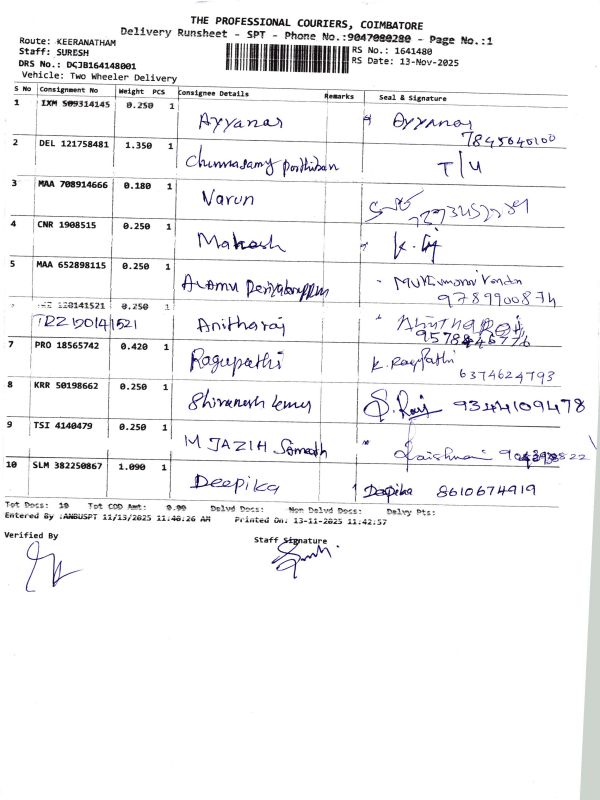 THE PROFESSIONAL COURIERS, COIMBATORE
Delivery Runsheet - SPT - Phone No.:9047080280 - Page No.:1
Route: KEERANATHAM
Staff: SURESH
RS No.: 1641480
DRS No.: DCJB164148001
RS Date: 13-Nov-2025
Vehicle: Two Wheeler Delivery
S No Consignment No Weight PCS Consignee Details Remarks Seal & Signature
1 IXM 509314145 0.250 1 Ayyanar Ayyanar
7845640100
2 DEL 121758481 1.350 1 Chinnasamy Parthiban T/U
3 MAA 708914666 0.180 1 Varun
4 CNR 1908515 0.250 1 Mahesh
5 MAA 652898115 0.250 1 Alamu
9789900874
120141521 0.250
TRZ 120141521 Anitharaj
7 PRO 18565742 0.420 1 Ragupathi K. Ragupathi
6374624793
8 KRR 50198662 0.250 1 S. Raj 9344109478
9 TSI 4140479 0.250 1 M JAZIH
10 SLM 382250867 1.090 1 Deepika Deepika 8610674919
Tot Docs: 10 Tot COD Amt: 0.00 Delvd Docs: Non Delvd Docs: Delvy Pts:
Entered By :ANBUSPT 11/13/2025 11:40:26 AM Printed On: 13-11-2025 11:42:57
Verified By
Staff Signature